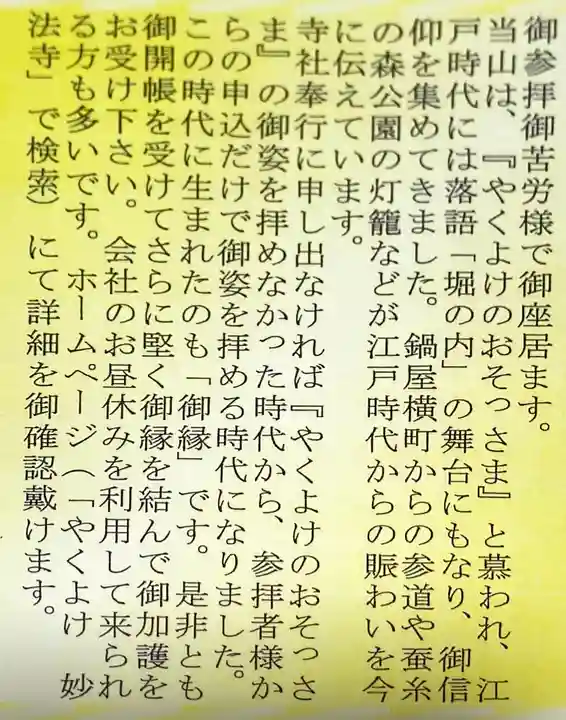 御参拝御苦労様で御座居ます。
当山は、『やくよけのおそっさま』と慕われ、江
戸時代には落語「堀の内」の舞台にもなり、御信
仰を集めてきました。鍋屋横町からの参道や蚕糸
の森公園の灯籠などが江戸時代からの賑わいを今
に伝えています。
寺社奉行に申し出なければ『やくよけのおそっさ
ま』の御姿を拝めなかった時代から、参拝者様か
らの申込だけで御姿を拝める時代になりました。
この時代に生まれたのも「御縁」です。是非とも
御開帳を受けてさらに堅く御縁を結んで御加護を
お受け下さい。会社のお昼休みを利用して来られ
る方も多いです。ホームページ（「やくよけ 妙
法寺」で検索）にて詳細を御確認戴けます。